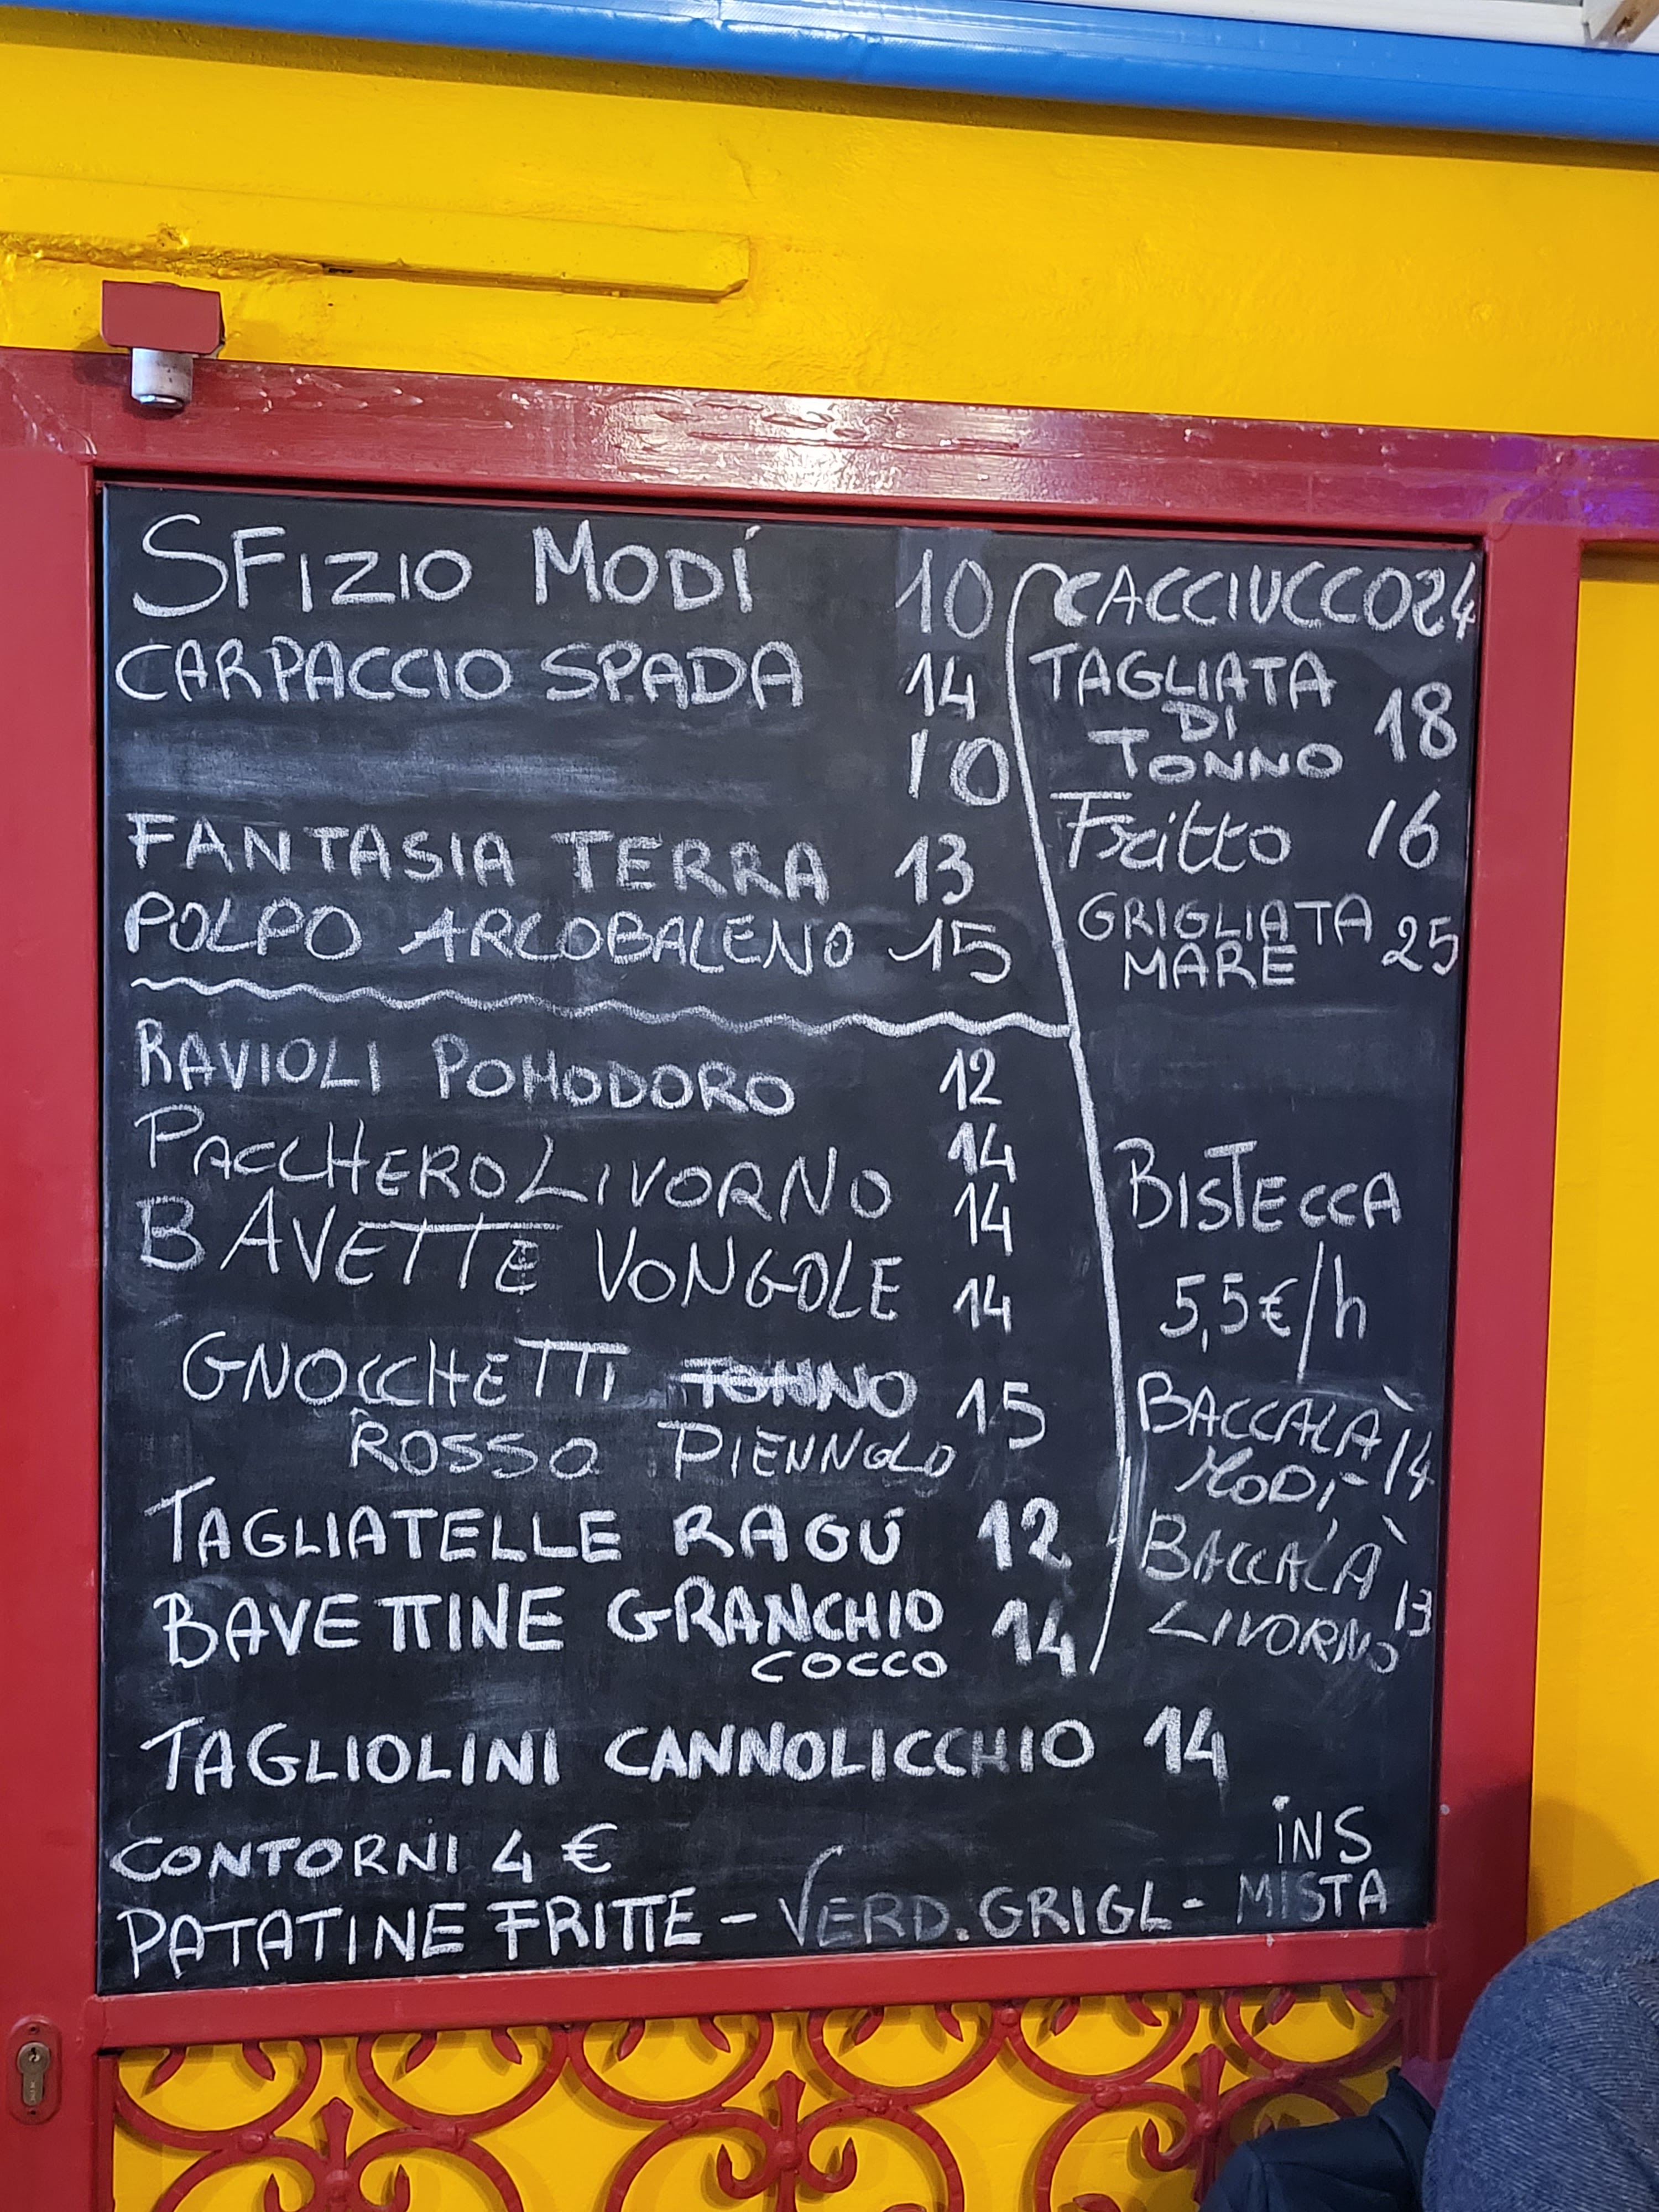 SFIZIO MODÍ 10
CARPACCIO SPADA 14
10
FANTASIA TERRA 13
POLPO ARCOBALENO 15
RAVIOLI POMODORO 12
PACCHERO LIVORNO 14
BAVETTE VONGOLE 14
14
GNOCCHETTI TONNO 15
ROSSO PIENNOLO
TAGLIATELLE RAGÚ 12
BAVETTINE GRANCHIO 14
COCCO
TAGLIOLINI CANNOLICCHIO 14
CACCIUCCO 24
TAGLIATA
DI 18
TONNO
Fritto 16
GRIGLIATA 25
MARE
BISTECCA
5,5€/h
BACCALÀ 14
MODÌ-
BACCALÀ
LIVORNO 13
CONTORNI 4 €
PATATINE FRITTE - VERD. GRIGL - INS
MISTA